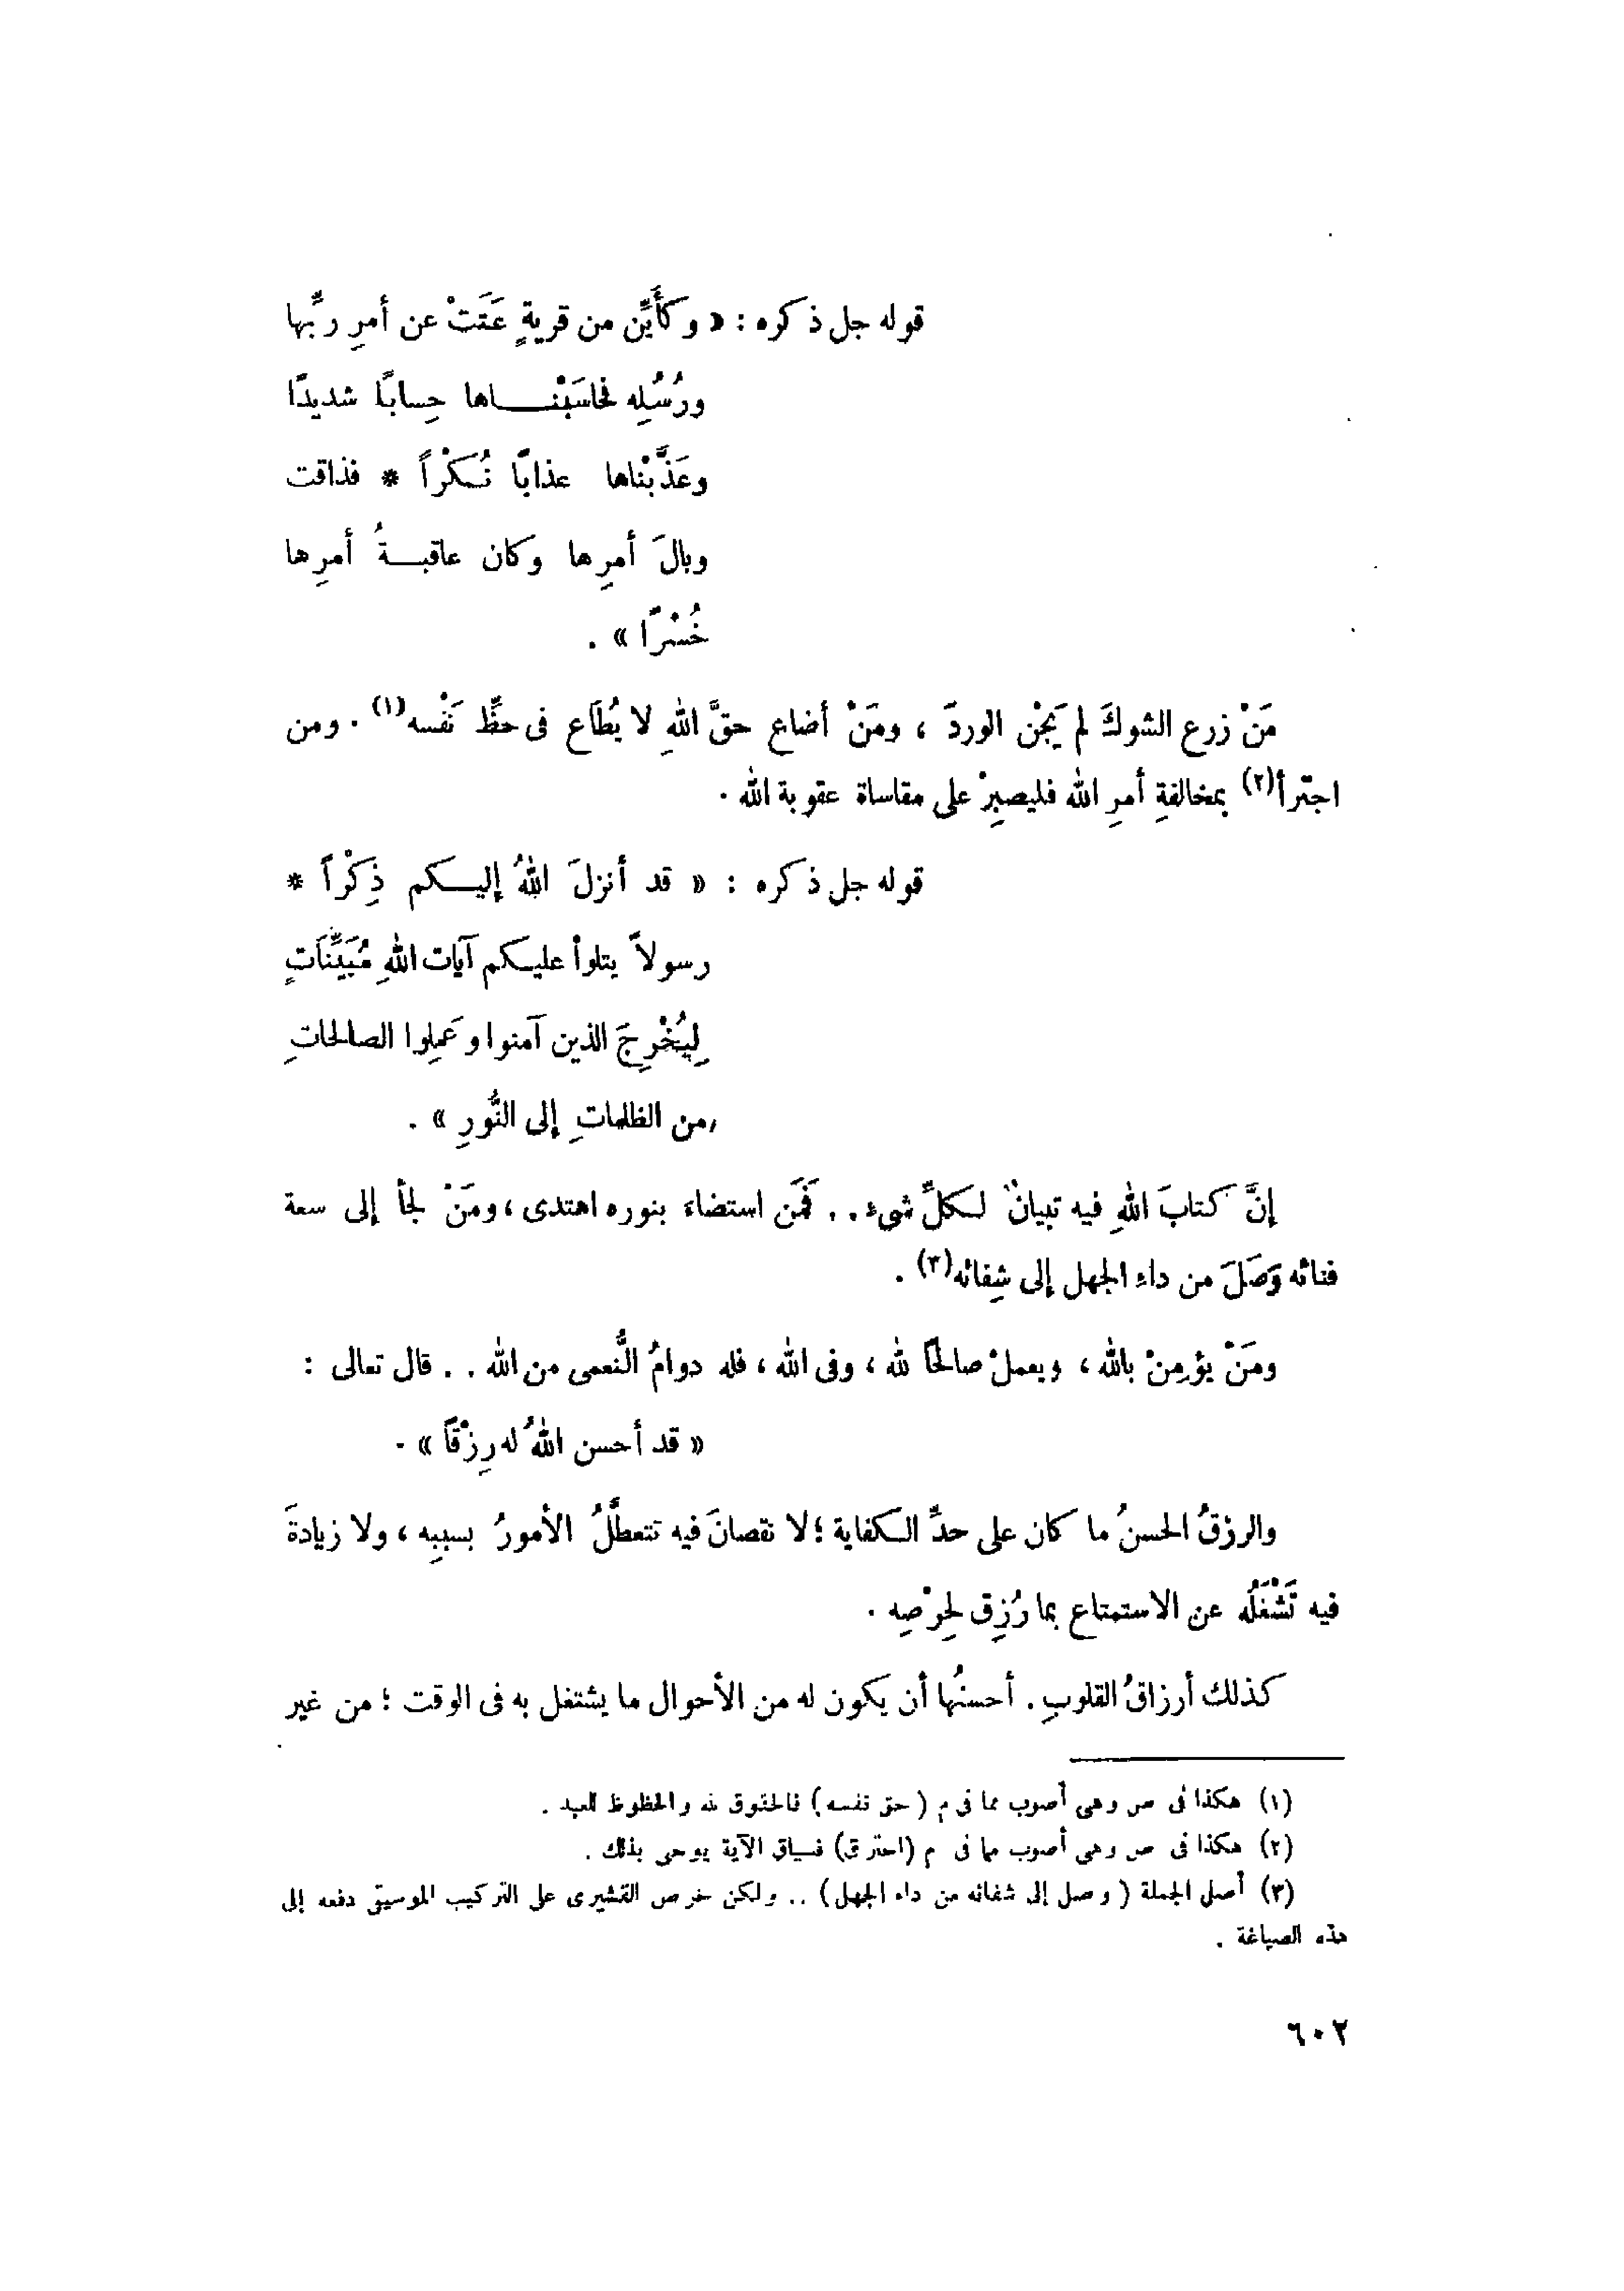 قوله جل ذكره : « وكَأَيِّن من قريةٍ عَتَتْ عن أمرِ ربِّها
ورُسُلِه فحاسَبْنـــاها حِسابًا شديدًا
وعَذَّبْناها عذابًا نُكْراً * فذاقت
وبالَ أمرِها وكان عاقبــةُ أمرِها
خُسْرًا » .
مَنْ زرع الشوكَ لم يَجْنِ الوردَ ، ومَنْ أضاع حقَّ اللهِ لا يُطَاع فى حظِّ نَفْسه(١) . ومن
اجترأ(٢) بمخالفةِ أمرِ الله فليصبِرْ على مقاساة عقوبة الله .
قوله جل ذكره : « قد أنزلَ اللهُ إليــكم ذِكْراً *
رسولاً يتلوا عليــكم آيات اللهِ مُبَيِّنَاتٍ
لِيُخْرِجَ الذين آمنوا وعَمِلوا الصالحاتِ
من الظلماتِ إلى النُّورِ » .
إنَّ كتابَ اللهِ فيه تبيانٌ لــكلِّ شىء . . فَمَن استضاءَ بنوره اهتدى ، ومَنْ لجأ إلى سعة
فنائه وَصَلَ من داءِ الجهل إلى شِفائه(٣) .
ومَنْ يؤمِنْ بالله ، ويعملْ صالحًا لله ، وفى الله ، فله دوامُ النُّعمى من الله . . قال تعالى :
« قد أحسن اللهُ له رِزْقاً » .
والرزقُ الحسنُ ما كان على حدِّ الــكفاية ؛ لا نقصانَ فيه تتعطَّلُ الأمورُ بسببِه ، ولا زيادةَ
فيه تَشْغَلُه عن الاستمتاع بما رُزِق لحِرْصِه .
كذلك أرزاقُ القلوبِ . أحسنُها أن يكون له من الأحوال ما يشتغل به فى الوقت ؛ من غير
(١) هكذا فى ص وهى أصوب مما فى م ( حق نفسه ) فالحقوق لله والحظوظ للعبد .
(٢) هكذا فى ص وهى أصوب مما فى م (احترق) فسياق الآية يوحى بذلك .
(٣) أصل الجملة ( وصل إلى شفائه من داء الجهل ) .. ولكن حرص القشيرى على التركيب الموسيقى دفعه إلى
هذه الصياغة .
٦٠٢